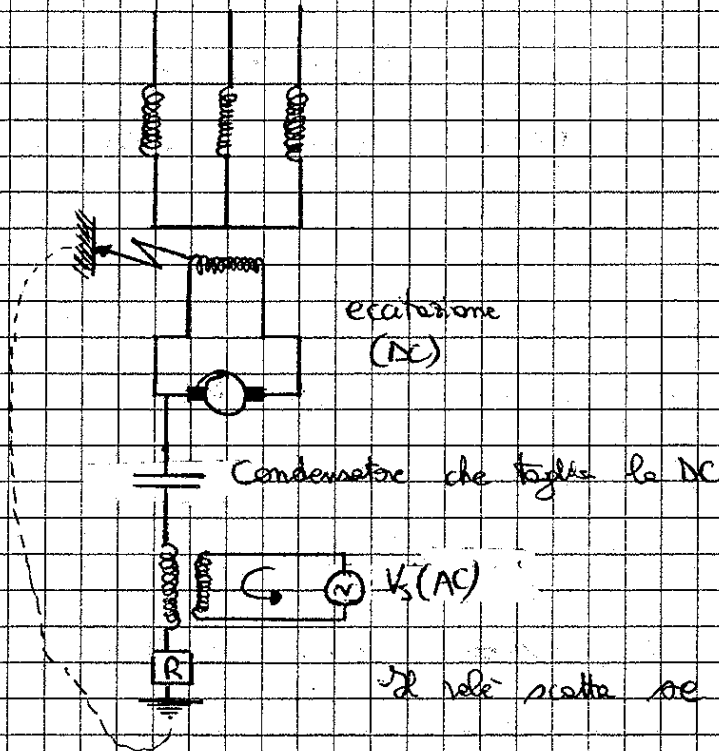 eccitazione
(DC)
Condensatore che taglia la DC
Vs(AC)
R
Il relè scatta se